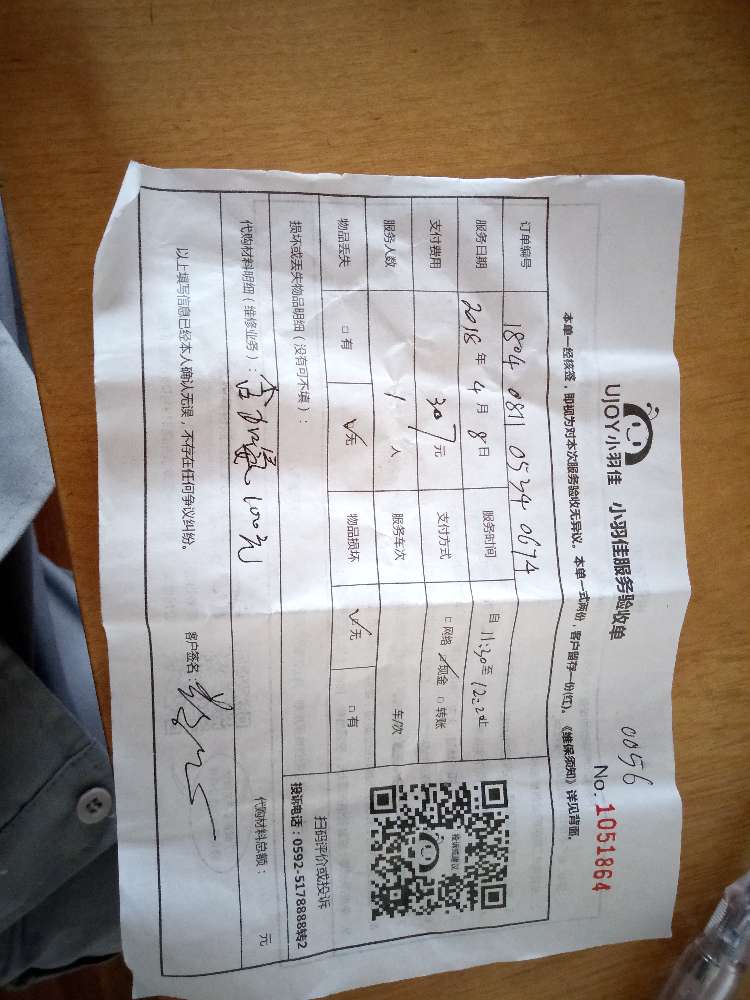 0056
UJOY小羽佳 小羽佳服务验收单 No. 1051864
本单一经核签，即视为对本次服务验收无异议。本单一式两份，客户留存一份(红)。《维保须知》详见背面。
订单编号 1804 0811 0534 0674
服务日期 2018 年 4 月 8 日 服务时间 自 11:30 至 12:20 止
支付费用 307 元 支付方式 □网络 ☑现金 □转账
服务人数 1 人 服务车次 车/次
物品丢失 □有 ☑无 物品损坏 ☑无 □有
损坏或丢失物品明细（没有可不填）：
代购材料明细（维修业务）： 100元 代购材料总额： 元
以上填写信息已经本人确认无误，不存在任何争议纠纷。 客户签名：
投诉或建议
扫码评价或投诉
投诉电话：0592-5178888转2